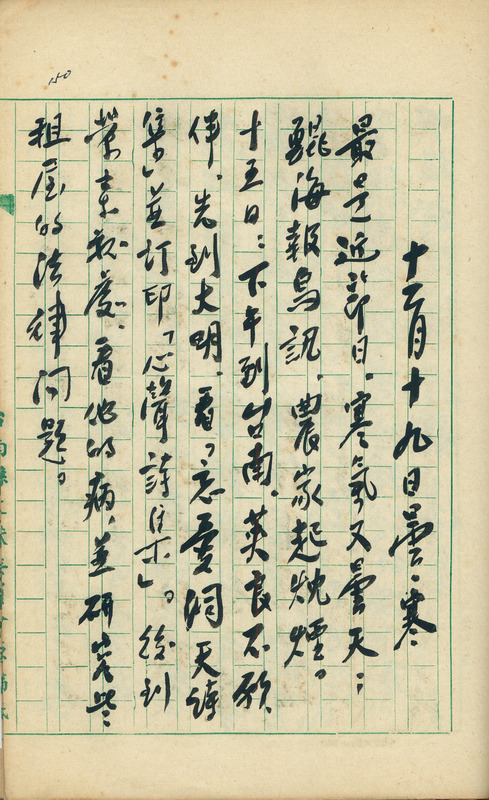 150
十二月十九日曇、寒
最是近節日。寒氣又曇天；
鯤海報烏訊、農家起炊煙。
十五日：下午到台南、英良不願
伴、先到大明、看「忘憂洞天詩
集」並訂印「心聲詩集」。後到
榮素敏處、看他的病、並研究些
租屋的法律問題。